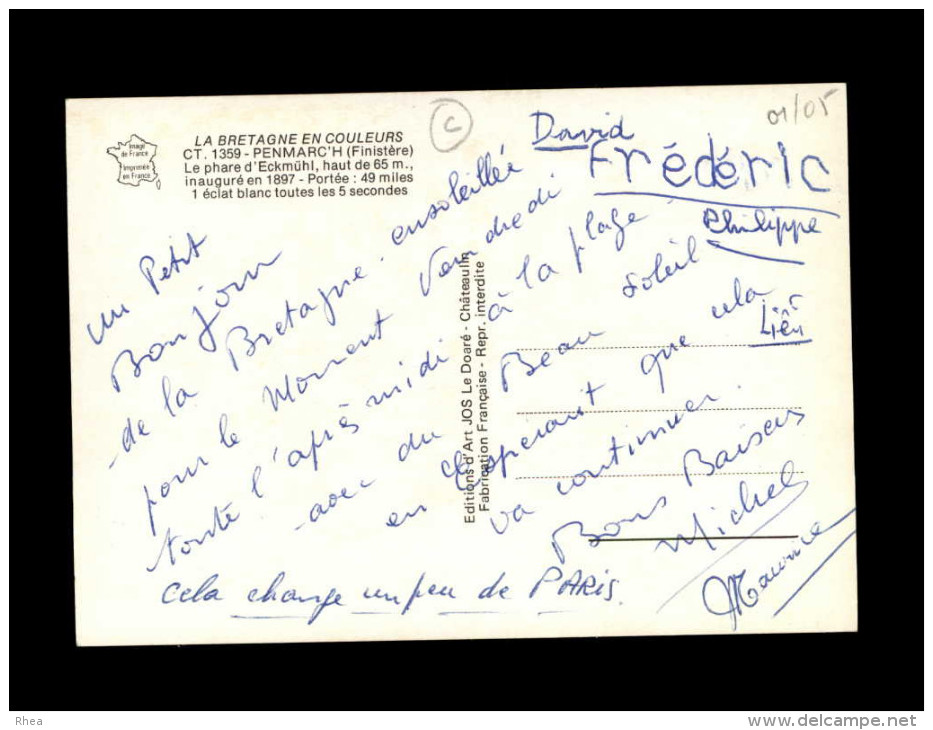 Image
de France
Imprimée
en France
LA BRETAGNE EN COULEURS
CT. 1359 - PENMARC'H (Finistère)
Le phare d'Eckmühl, haut de 65 m.,
inauguré en 1897 - Portée : 49 miles
1 éclat blanc toutes les 5 secondes
C
01/05
David
Frédéric
Philippe
un Petit
Bonjour
de la Bretagne ensoleillée
pour le Moment Vendredi
toute l'après midi à la plage
avec du Beau soleil
en Esperant que cela
va continuer.
Bons Baisers
Michel
Maurice
cela change un peu de PARIS.
Editions d'Art JOS Le Doaré - Châteaulin
Fabrication Française - Repr. interdite
Rhea
www.delcampe.net